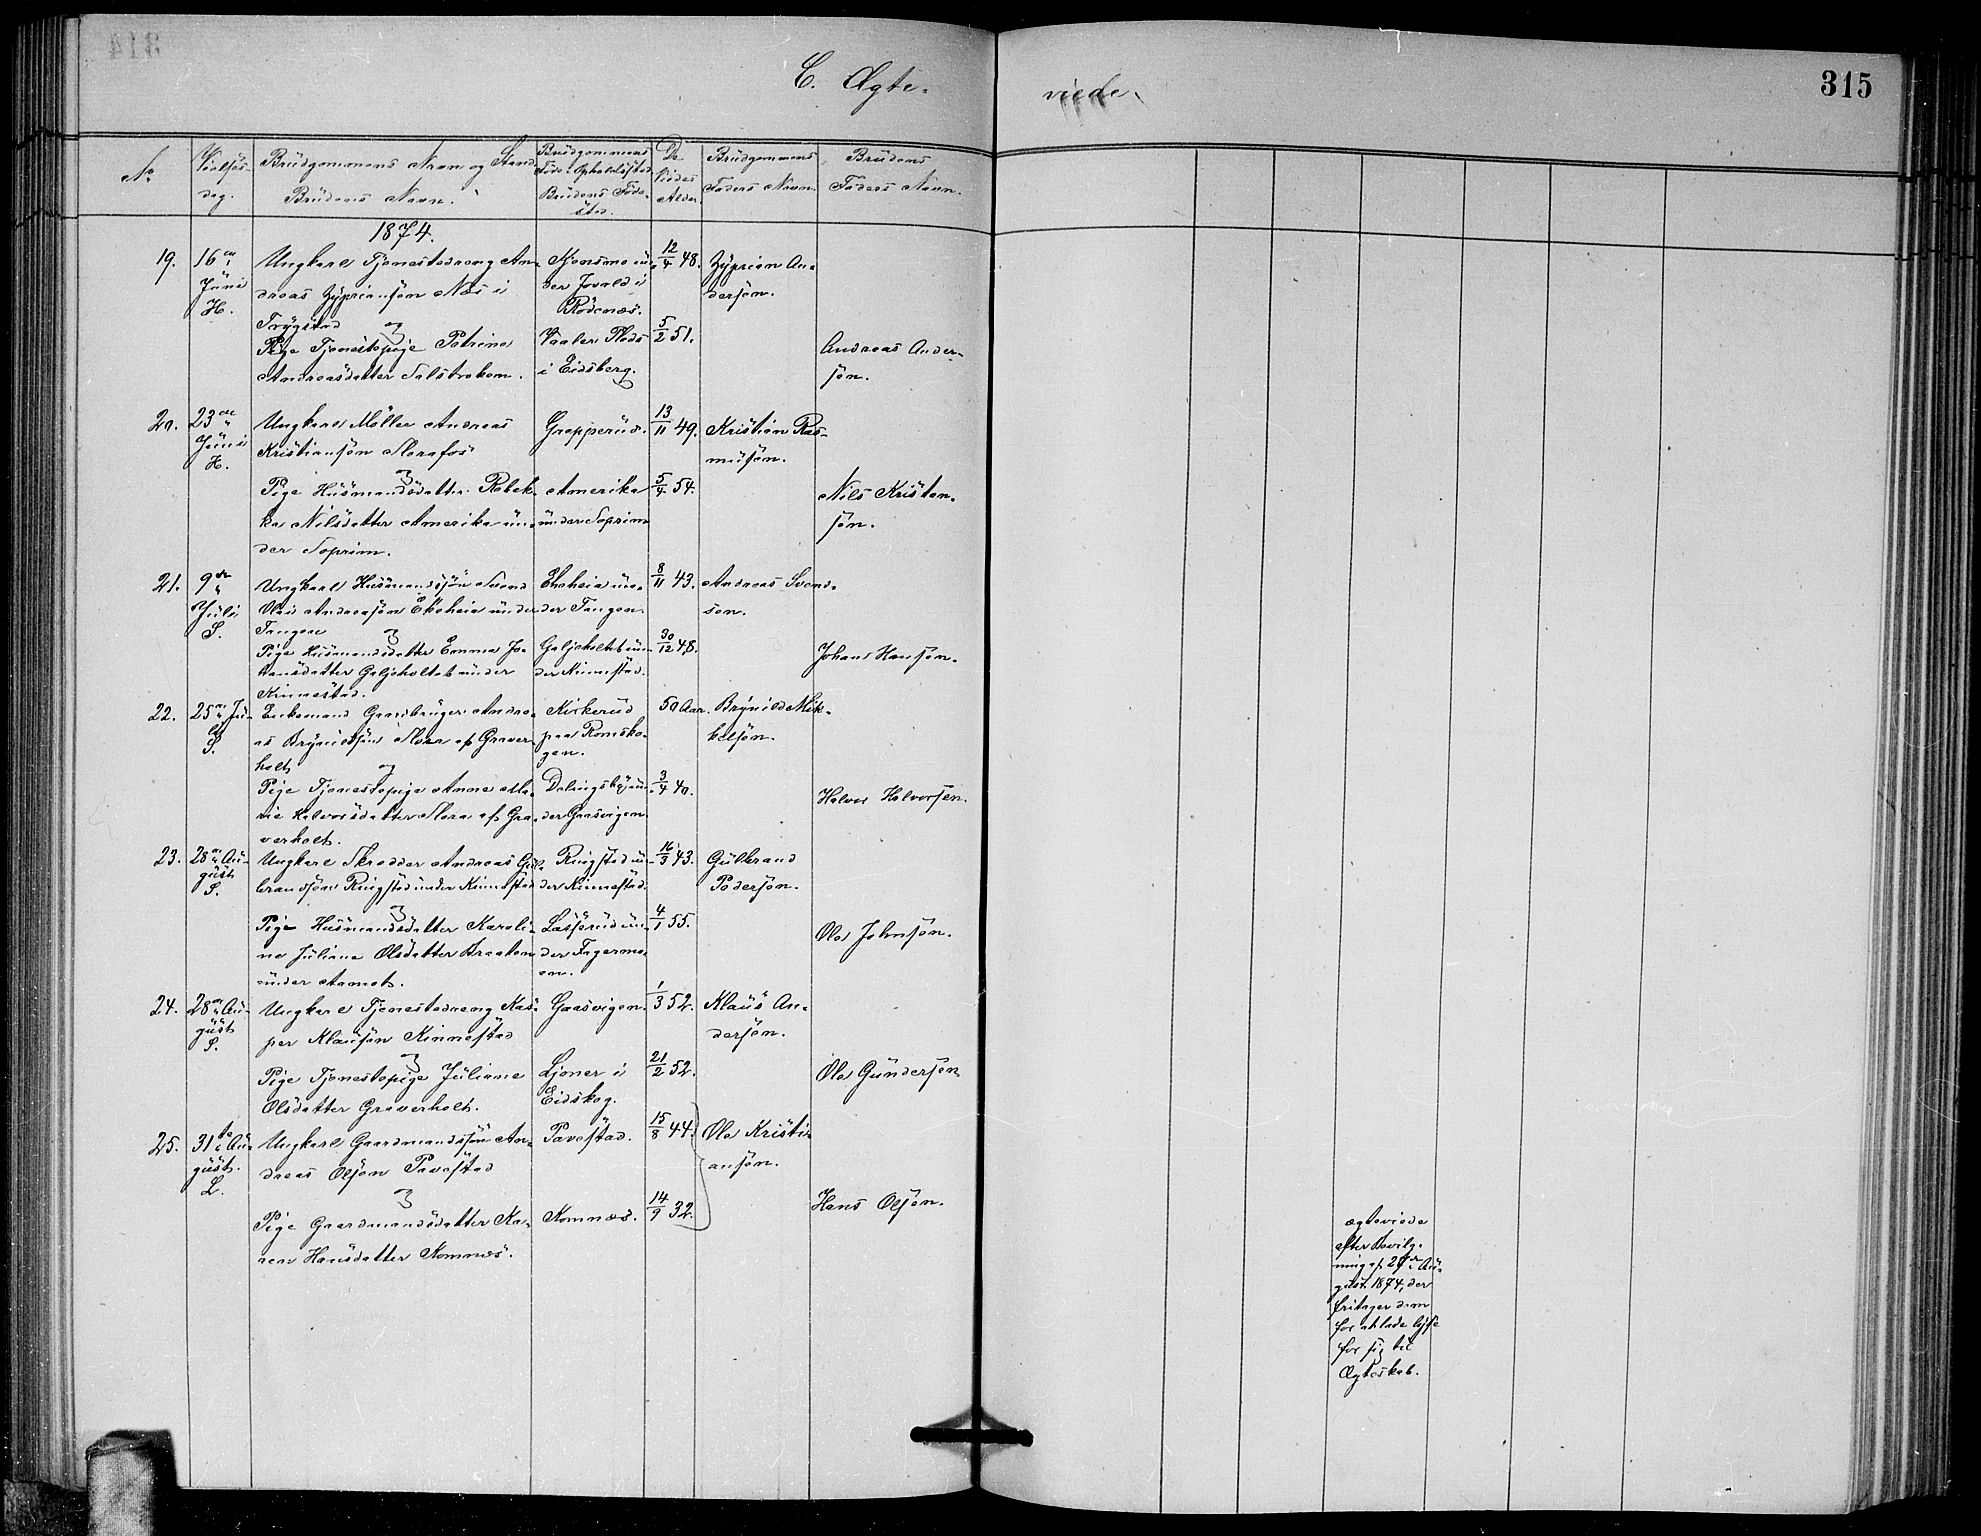 C. Ægte-
viede.
315
No
Vielses-
dag.
Brudgommens Navn og Stand.
Brudens Navn.
Brudgommens
Føde- Opholdssted
Brudens Føde-
sted.
De
Viedes
Alder.
Brudgommens
Faders Navn.
Brudens
Faders Navn.
1874.
19.
16
Juni
H.
Ungkarl Tjenestedreng An-
dreas Zypriansøn Næs i
Trygstad og
Pige Tjenestepige Petrine
Andreasdatter
un-
der i
Rødenæs.
Vaaler Plads
i Eidsberg.
12/4 48.
5/2 51.
Zyprian An-
dersøn.
Andreas Ander-
søn.
20.
23
Juni
H.
Ungkarl Møller Andreas
Kristiansøn Slorafos
og
Pige Husmandsdatter Rebek-
ka Nilsdatter Amerika un-
der Soprim.
Grepperud.
Amerika
under Soprim
13/11 49.
5/4 54.
Kristian Ras-
musøn.
Nils Kristen-
søn.
21.
9
Juli
S.
Ungkarl Husmandssøn Svend
Olaus Andreasøn Ekeheia under
Tangen og
Pige Husmandsdatter Emma Jo-
hansdatter Galjeholtet under
Kinnestad.
Ekeheia un-
der Tangen.
Galjeholtet un-
der Kinnestad.
8/11 43.
30/12 48.
Andreas Svend-
sen.
Johans Hansøn.
22.
25 Ju-
li
S.
Enkemand Gaardbruger Andre-
as Brynildsøn Slora af Graver-
holt og
Pige Tjenestepige Anne Ma-
rie Halvorsdatter Slora af Gra-
verholt.
Kirkerud
paa Romsko-
gen.
un-
der Gaasvigen.
50 Aar.
3/4 40.
Brynild Mik-
kelsøn.
Halvor Halvorsen.
23.
28 Au-
gust
S.
Ungkarl Skrædder Andreas Gul-
brandsøn Ringstad under Kinnestad
og
Pige Husmandsdatter Karoli-
ne Juliane Olsdatter Braaten
under Aamot.
Ringstad un-
der Kinnestad.
Lasserud un-
der Fagermo-
en.
16/3 43.
4/1 55.
Gulbrand
Pedersøn.
Ole Johnsøn.
24.
28 Au-
gust
S.
Ungkarl Tjenestedreng Kas-
per Klausøn Kinnestad
og
Pige Tjenestepige Juliane
Olsdatter Graverholt.
Gaasvigen.
Ljøner i
Eidskog.
1/3 52.
21/2 52.
Klaus An-
dersøn.
Ole Gundersøn.
25.
31 Au-
gust.
L.
Ungkarl Gaardmandssøn An-
dreas Olsøn Pavestad
og
Pige Gaardmandsdatter Ka-
ren Hansdatter Komnæs.
Pavestad.
Komnæs.
15/8 44.
14/9 32.
Ole Kristi-
ansøn.
Hans Olsøn.
ægteviede
efter Bevilg-
ning af 27 Au-
gust 1874, der
fritager dem
for at lade lyse
for sig til
Ægteskab.